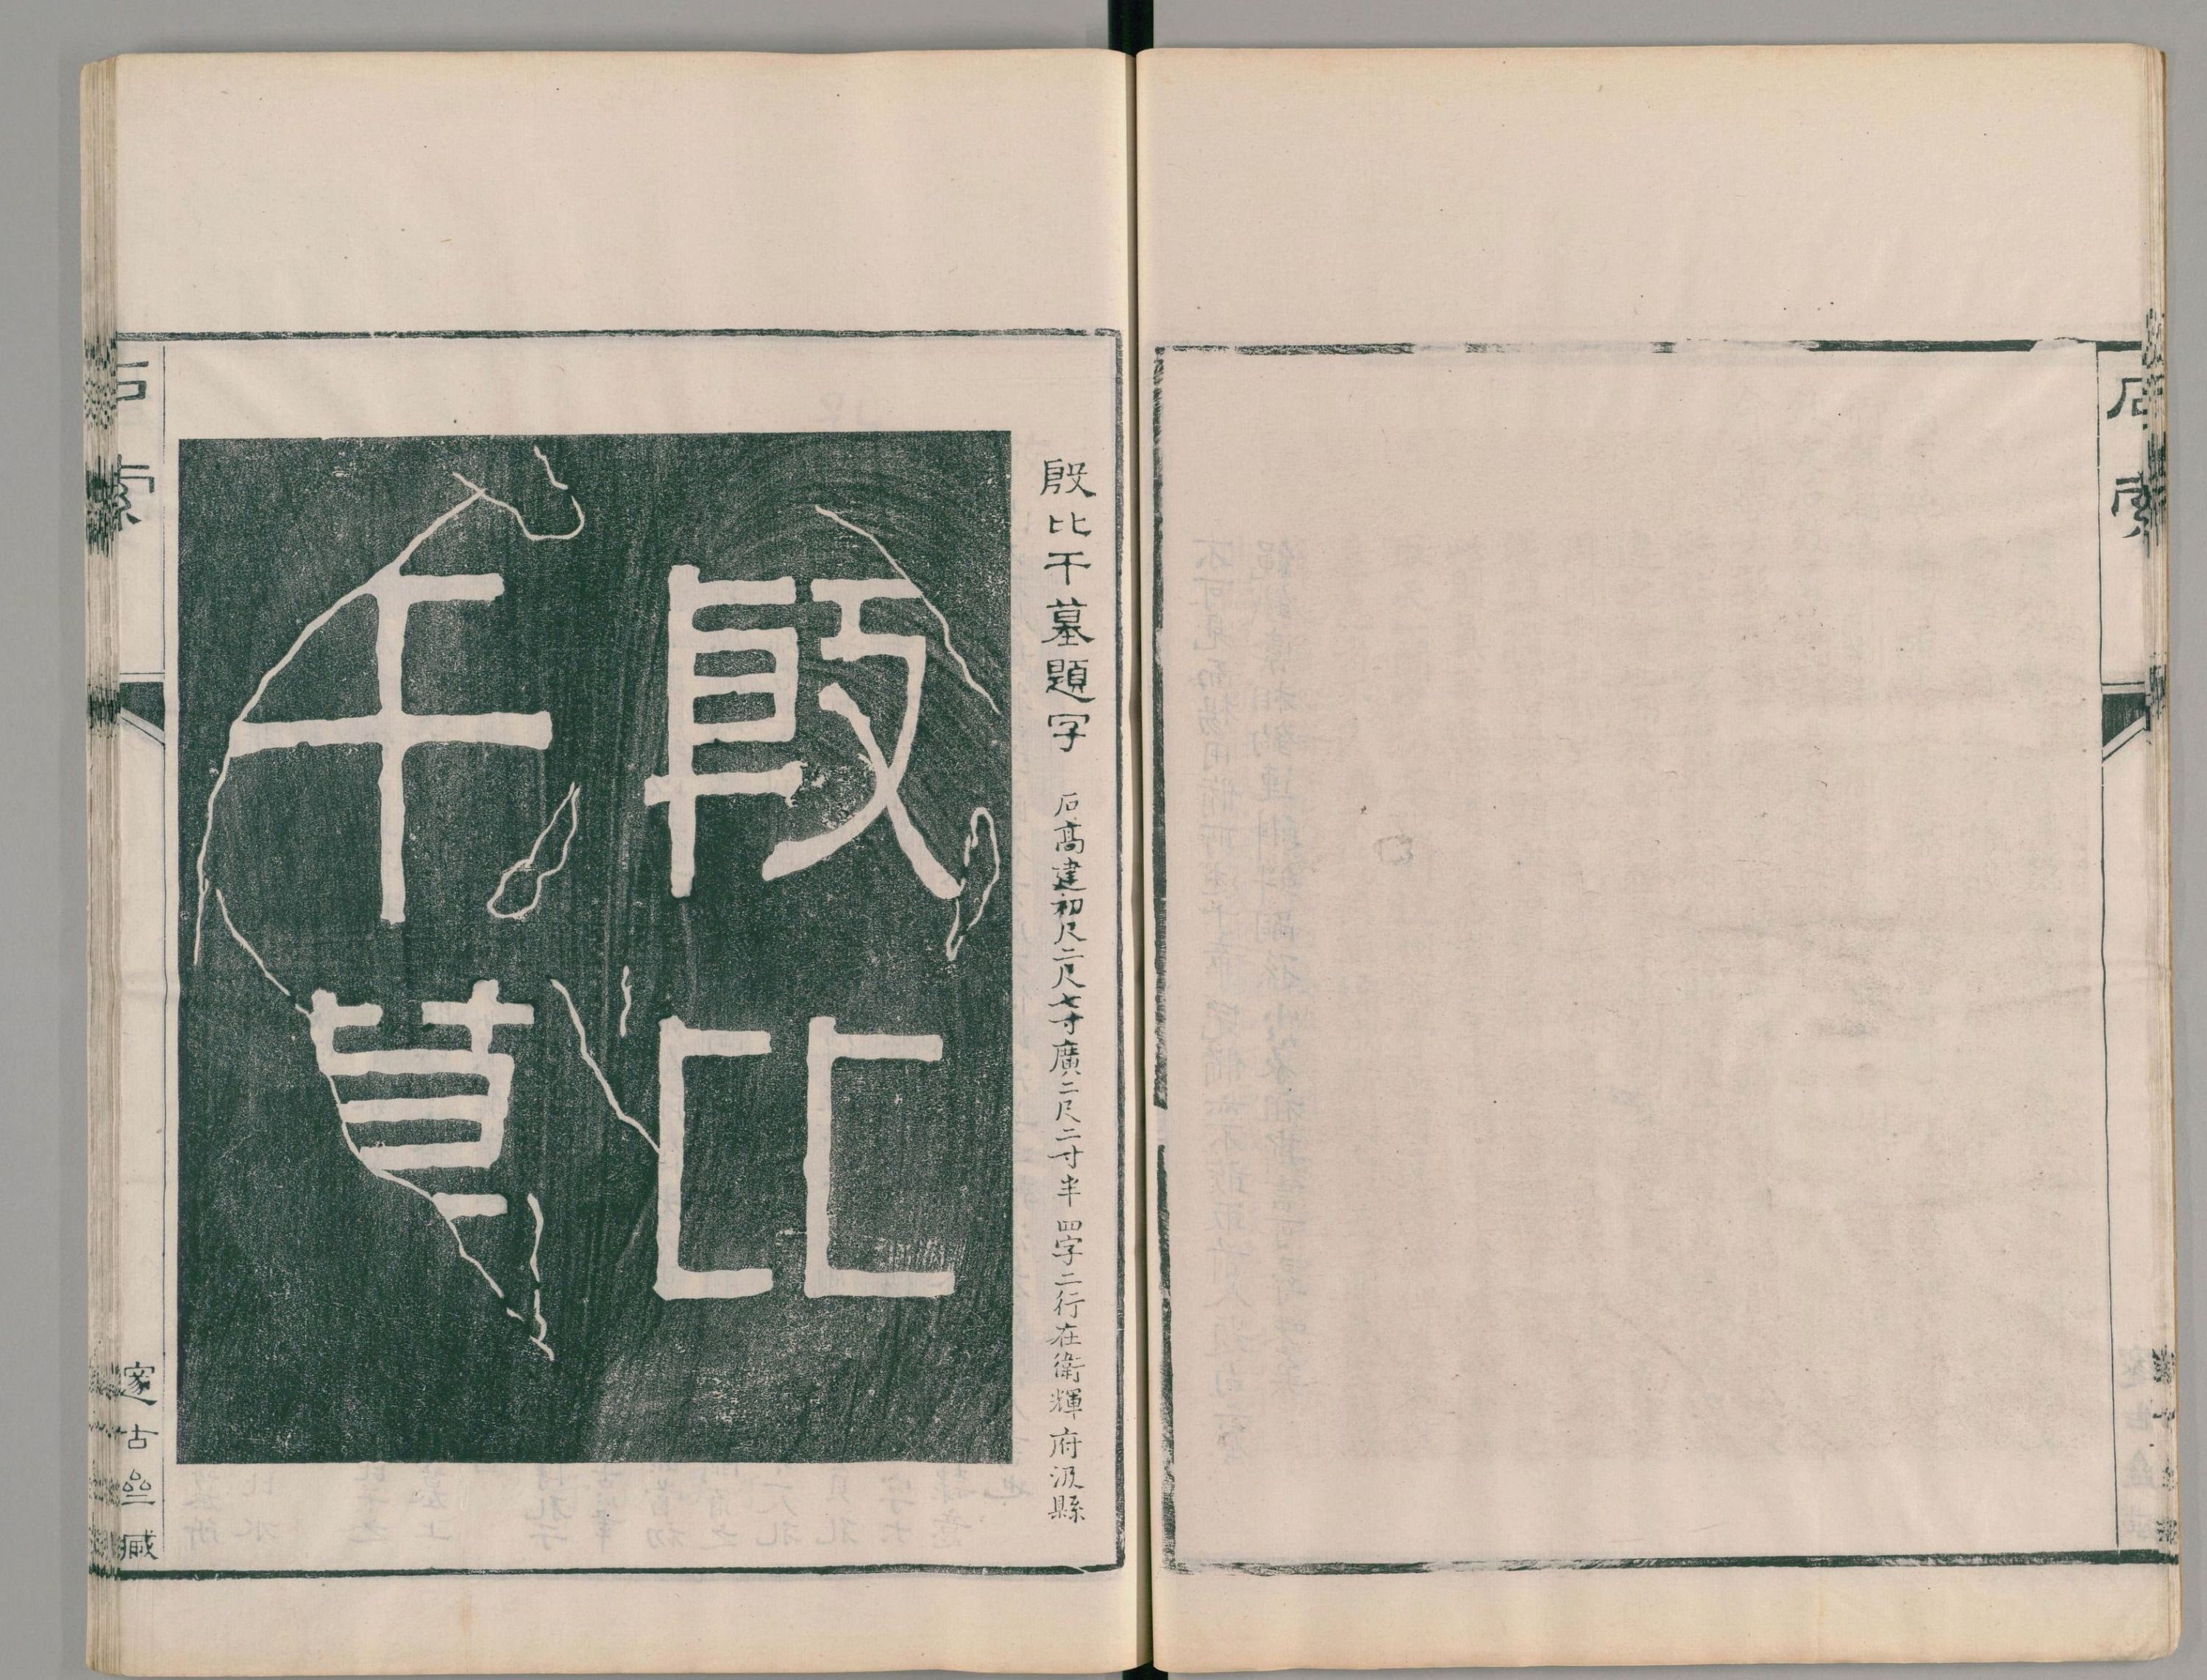 石索
殷比干墓題字 石高建初尺二尺七寸廣二尺二寸半 四字二行在衛輝府汲縣
殷比
干莫
石索
邃古齋臧